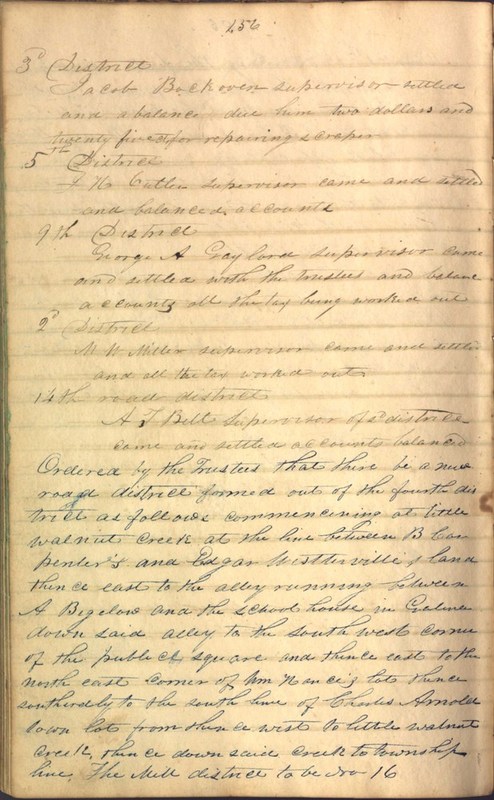 256
3d District
Jacob Backoven supervisor settled
and a balance due him two dollars and
twenty five cts for repairing scraper
5th District
F N Cutler supervisor came and settled
and balanced accounts
9th District
George A Gaylord supervisor came
and settled with the trustees and balance
accounts all the tax being worked out
2d District
M W Miller supervisor came and settled
and all the tax worked out
14th road district
A J Belt supervisor of sd district
came and settled accounts balanced
Ordered by the Trustees that there be a new
road district formed out of the fourth dis
trict as follows commencening at little
walnut creek at the line between B Car
penter's and Edgar land
thence east to the alley running between
A Bigelow and the school house in Galena
down said alley to the south west corner
of the public square and thence east to the
north east corner of Wm Nance's lot thence
southerdly to the south line of Charles Arnold
town lot from thence west to little walnut
creek, thence down said creek to township
line, The Mill district to be No 16